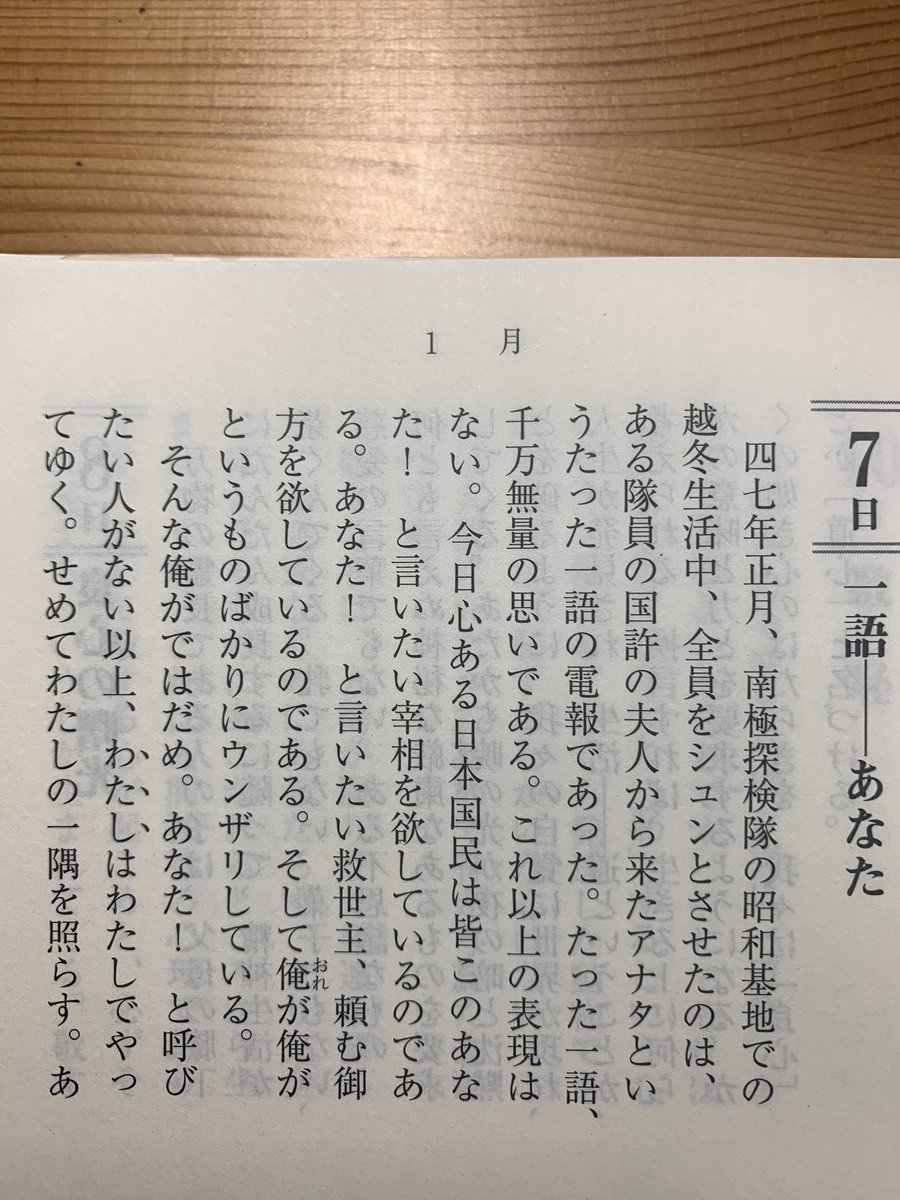 1 月
7日
一語――あなた
四七年正月、南極探検隊の昭和基地での
越冬生活中、全員をシュンとさせたのは、
ある隊員の国許の夫人から来たアナタとい
うたった一語の電報であった。たった一語、
千万無量の思いである。これ以上の表現は
ない。今日心ある日本国民は皆このあな
た! と言いたい宰相を欲しているのであ
る。あなた! と言いたい救世主、頼む御
方を欲しているのである。そして俺おれが俺が
というものばかりにウンザリしている。
そんな俺がではだめ。あなた! と呼び
たい人がない以上、わたしはわたしでやっ
てゆく。せめてわたしの一隅を照らす。あ